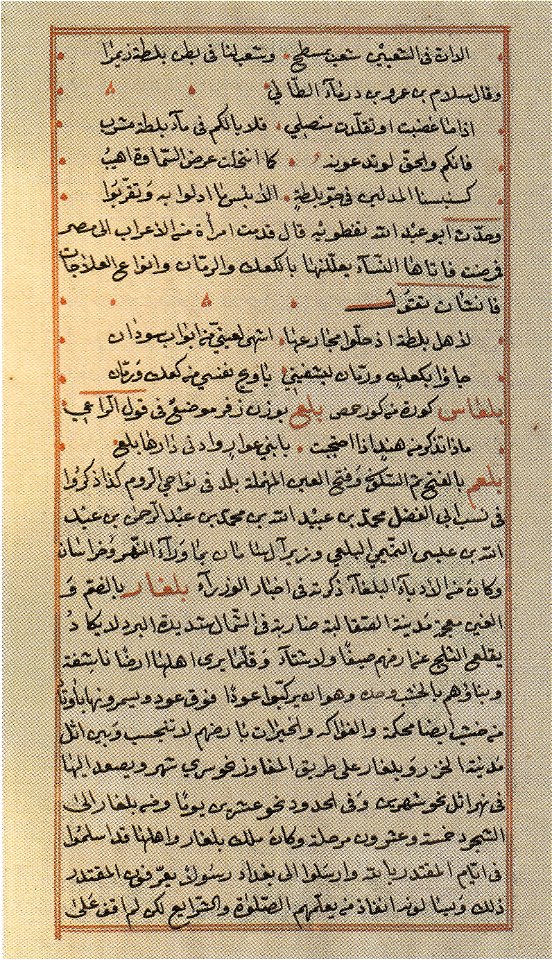 الا ان في الشعبين شعب بمسطح وشعب لنا في بطن بلطة زيمرا
وقال سلام بن عمرو بن درمآء الطآئي
اذا ما غضبت او تقلدت منصلي فلا بالكم في مآء بلطة مشرب
فانكم والحق لو تدعونه كما انتحلت عرض السماوة اهيب
كسنبسنا المدلين في جو بلطة الا بئس ما ادلوا به وتقربوا
وحدث ابو عبد الله نفطويه قال قدمت امرأة من الاعراب الى مصر
فمرضت فاتاها النسآء يعللنها بالكعك والرمان وانواع العلاجات
فانشأت تقول
لاهل بلطة اذ حلوا مجارعها اشهى لعيني من ابواب سودان
جاؤا بكعك ورمان ليشفيني يا ويح نفسي من كعك ورمان
بلغاس كورة من كور حمص بلع بوزن زفر موضع في قول الراعي
ماذا تذكر من هند اذا احتجبت بابني عوار وادنى دارها بلع
بلعم بالفتح ثم السكون وفتح العين المهملة بلد في نواحي الروم كذا ذكروا
في نسب ابي الفضل محمد بن عبيد الله بن محمد بن عبد الرحمن بن عبد
الله بن عيسى التميمي البلعمي وزير آل سامان بما ورآء النهر وخراسان
وكان من الادبآء البلغآء ذكرته في اخبار الوزرآء بلغار بالضم و
الغين معجمة مدينة الصقالبة ضاربة في الشمال شديدة البرد لا يكاد
يقلع الثلج عن ارضهم صيفا ولا شتآء وقلما يرى اهلها ارضا ناشفة
وبناؤهم بالخشب وحده وهو ان يركبوا عودا فوق عود ويسمرونها باوتاد
من خشب ايضا محكمة والفواكه والخيرات بارضهم لا تنجب وبين اتل
مدينة الخزر وبلغار على طريق المفاوز نحو من شهر ويصعد اليها
في نهر اتل نحو شهرين وفي الحدود نحو عشرين يوما ومن بلغار الى
الشجرد خمسة وعشرون مرحلة وكان ملك بلغار واهلها قد اسلموا
في ايام المقتدر بالله وارسلوا الى بغداد رسولا يعرفون المقتدر
ذلك ويسألونه انفاذ من يعلمهم الصلوة والشرايع لكن لم اقف على